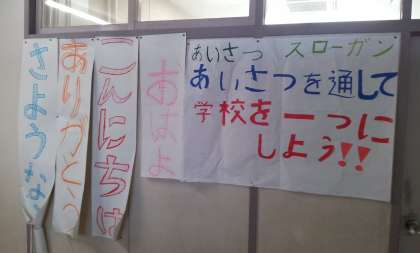 あいさつ スローガン
あいさつを通して
学校を一つに
しよう!!
おはよ
こんにちは
ありがとう
さような